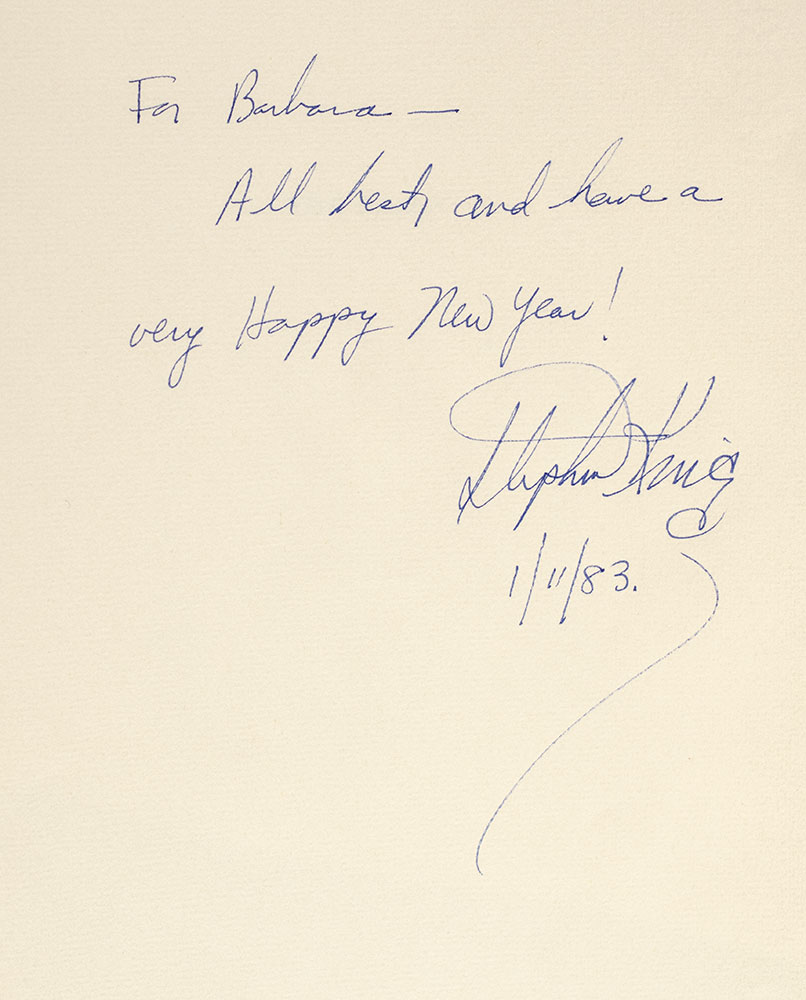 For Barbara —
All best, and have a
very Happy New Year!
Stephen King
1/11/83.